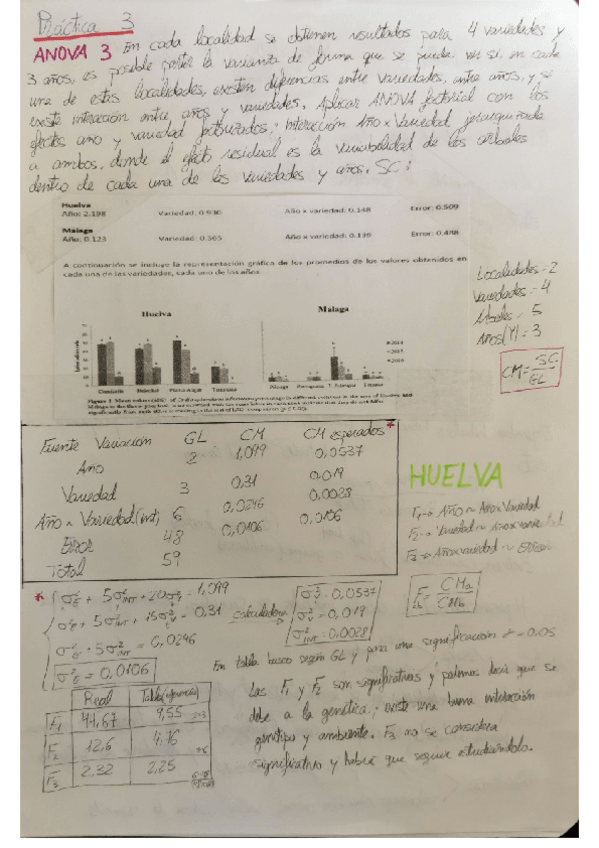 Práctica 3
ANOVA 3 En cada localidad se obtienen resultados para 4 variedades y
3 años, es posible partir la varianza de forma que se pueda ver si, en cada
una de estas localidades, existen diferencias entre variedades, entre años, y se
existe interacción entre años y variedades. Aplicar ANOVA factorial con los
efectos año y variedad factorizados; Interacción Año x Variedad jerarquizada
a ambos, donde el efecto residual es la variabilidad de los árboles
dentro de cada una de las variedades y años. SC:
Huelva
Año: 2.198 Variedad: 0.930 Año x variedad: 0.148 Error: 0.509
Malaga
Año: 0.123 Variedad: 0.565 Año x variedad: 0.139 Error: 0.488
A continuación se incluye la representación gráfica de los promedios de los valores obtenidos en
cada una de las variedades, cada uno de los años.
Localidades = 2
Variedades = 4
Árboles = 5
Años (Y) = 3
CM = SC/GL
Huelva Malaga
Fuente Variación GL CM CM esperados *
Año 2 1,099 0,0537
Variedad 3 0,31 0,019
Año x Variedad (int) 6 0,0246 0,0028
Error 48 0,0106 0,0106
Total 59
HUELVA
F1 → Año ~ Año x Variedad
F2 → Variedad ~ Año x variedad
F3 → Año x variedad ~ Error
* σ²E + 5σ²INT + 20σ²Y = 1,099
σ²E + 5σ²INT + 15σ²V = 0,31
σ²E + 5σ²INT = 0,0246
σ²E = 0,0106
calculadora
σ²Y = 0,0537
σ²V = 0,019
σ²INT = 0,0028
F = CMa/CMb
En tabla busco según GL y para una significación α = 0.05
Real Tabla
F1 44,67 9,55
F2 12,6 4,76
F3 2,32 2,25
Las F1 y F2 son significativas y podemos decir que se
debe a la genética; existe una buena interacción
genotipo y ambiente. F3 no se considera
significativo y habría que seguir estudiándolo.